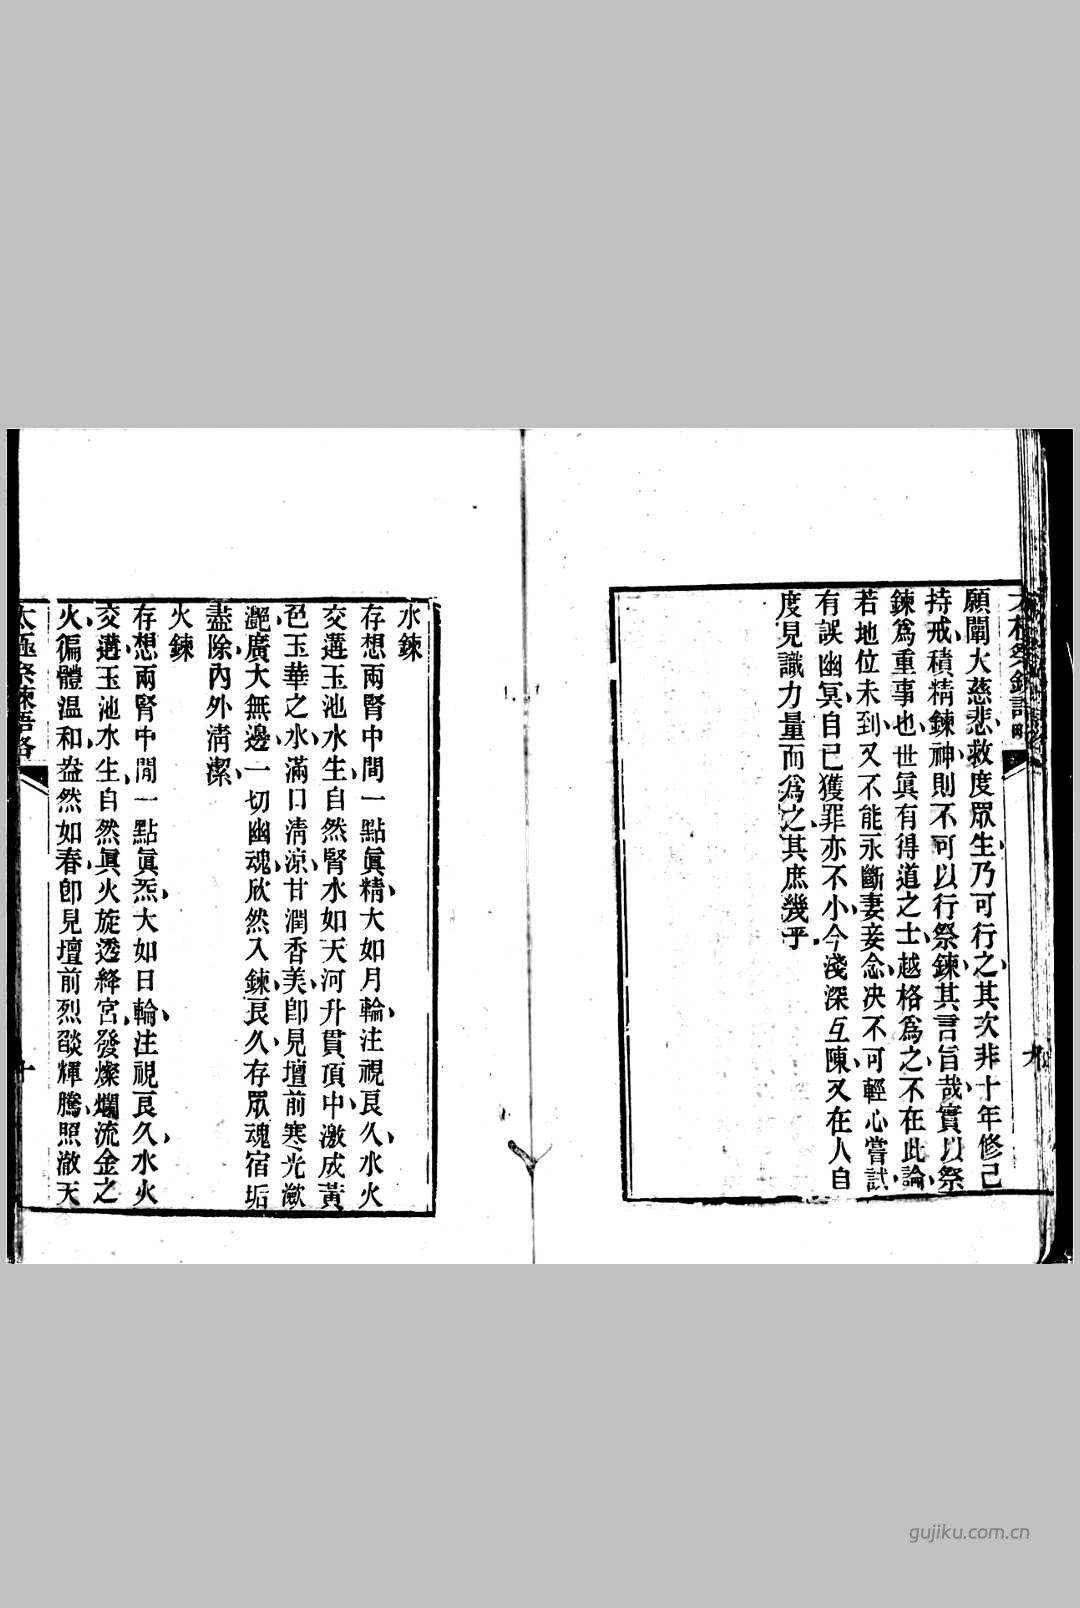 願闡大慈悲救度眾生乃可行之其次非十年修己
持戒積精鍊神則不可以行祭鍊其言旨哉實以祭
鍊爲重事也世眞有得道之士越格爲之不在此論
若地位未到又不能永斷妻妾念決不可輕心嘗試
有誤幽冥自已獲罪亦不小今淺深互陳又在人自
度見識力量而爲之其庶幾乎
水鍊
存想兩腎中間一點眞精大如月輪注視良久水火
交遘玉池水生自然腎水如天河升貫頂中激成黃
色玉華之水滿口清涼甘潤香美卽見壇前寒光瀲
灩廣大無邊一切幽魂欣然入鍊良久存眾魂宿垢
盡除內外清潔
火鍊
存想兩腎中閒一點眞炁大如日輪注視良久水火
交遘玉池水生自然眞火旋透絳宮發燦爛流金之
火徧體温和盎然如春卽見壇前烈燄輝騰照澈天
gujiku.com.cn